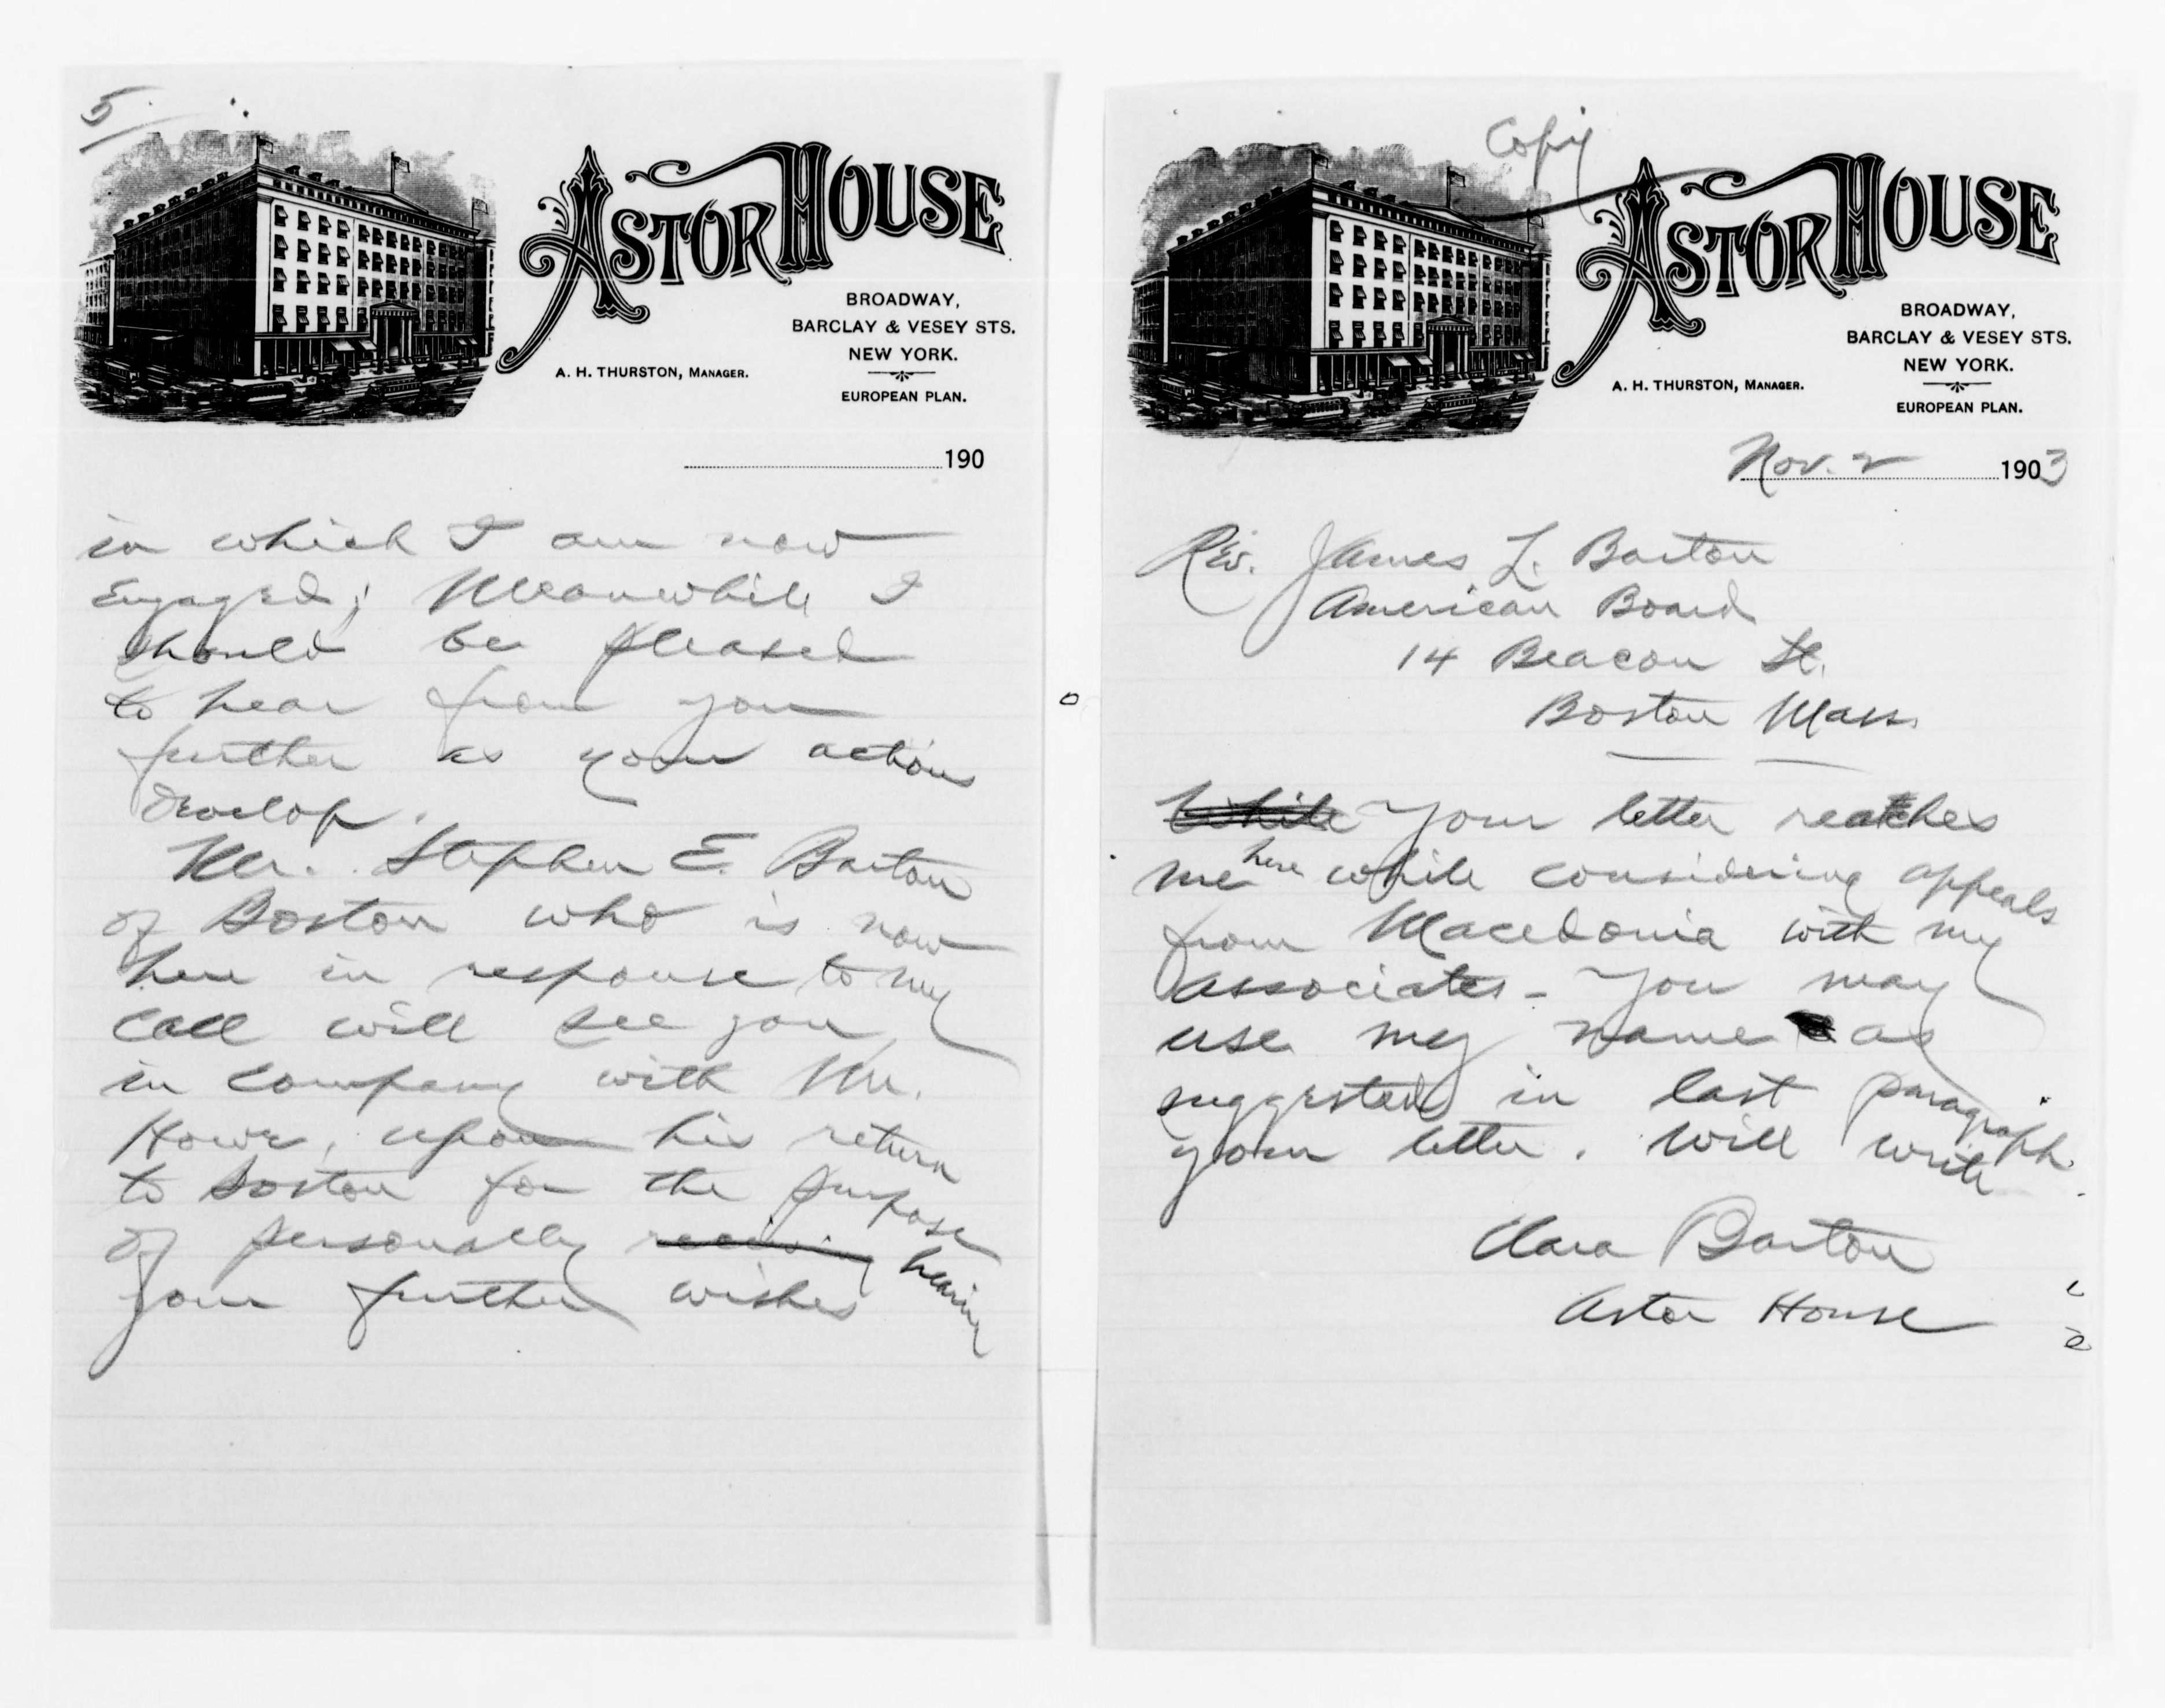 5
ASTOR HOUSE
BROADWAY,
BARCLAY & VESEY STS.
NEW YORK.
A. H. THURSTON, MANAGER.
EUROPEAN PLAN.
190
in which I am now
Engaged; Meanwhile I
should be pleased
to hear from you
further as your actions
develop.
Mr. Stephen E. Barton
of Boston who is now
here in response to my
call will see you
in company with Mr.
Howe, upon his return
to Boston for the purpose
of personally receiving hearing
your further wishes
Copy
ASTOR HOUSE
BROADWAY,
BARCLAY & VESEY STS.
NEW YORK.
A. H. THURSTON, MANAGER.
EUROPEAN PLAN.
Nov. 2 1903
Rev. James L. Barton
American Board
14 Beacon St.
Boston Mass.
While Your letter reaches
me here while considering appeals
from Macedonia with my
associates - You may
use my name as
suggested in last paragraph
your letter. Will write.
Clara Barton
Astor House